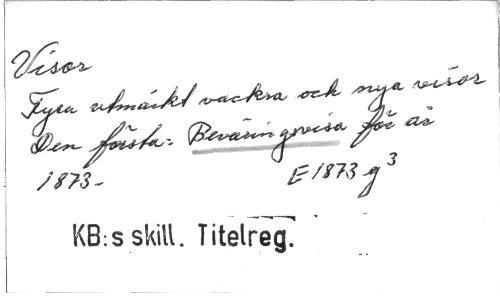 Visor
Fyra utmärkt vackra och nya visor
Den första: Beväringsvisa för år
1873-
E 1873 g 3
KB:s skill. Titelreg.